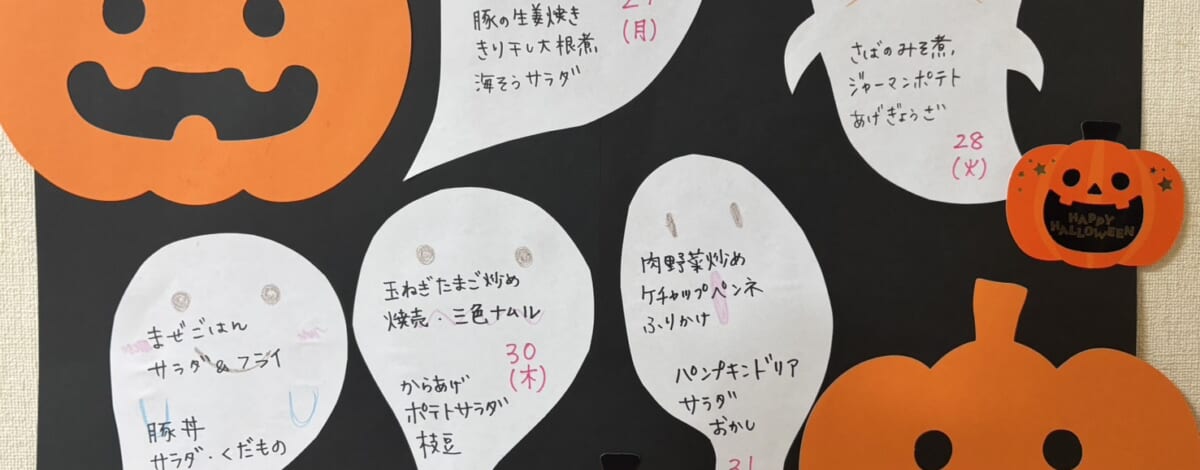 豚の生姜焼き
きり干し大根煮
海そうサラダ
(月)
さばのみそ煮
ジャーマンポテト
あげぎょうざ
28
(火)
HAPPY
HALLOWEEN
まぜごはん
サラダ&フライ
豚丼
サラダ・くだもの
玉ねぎたまご炒め
焼売・三色ナムル
30
(木)
からあげ
ポテトサラダ
枝豆
肉野菜炒め
ケチャップペンネ
ふりかけ
パンプキンドリア
サラダ
おかし
31